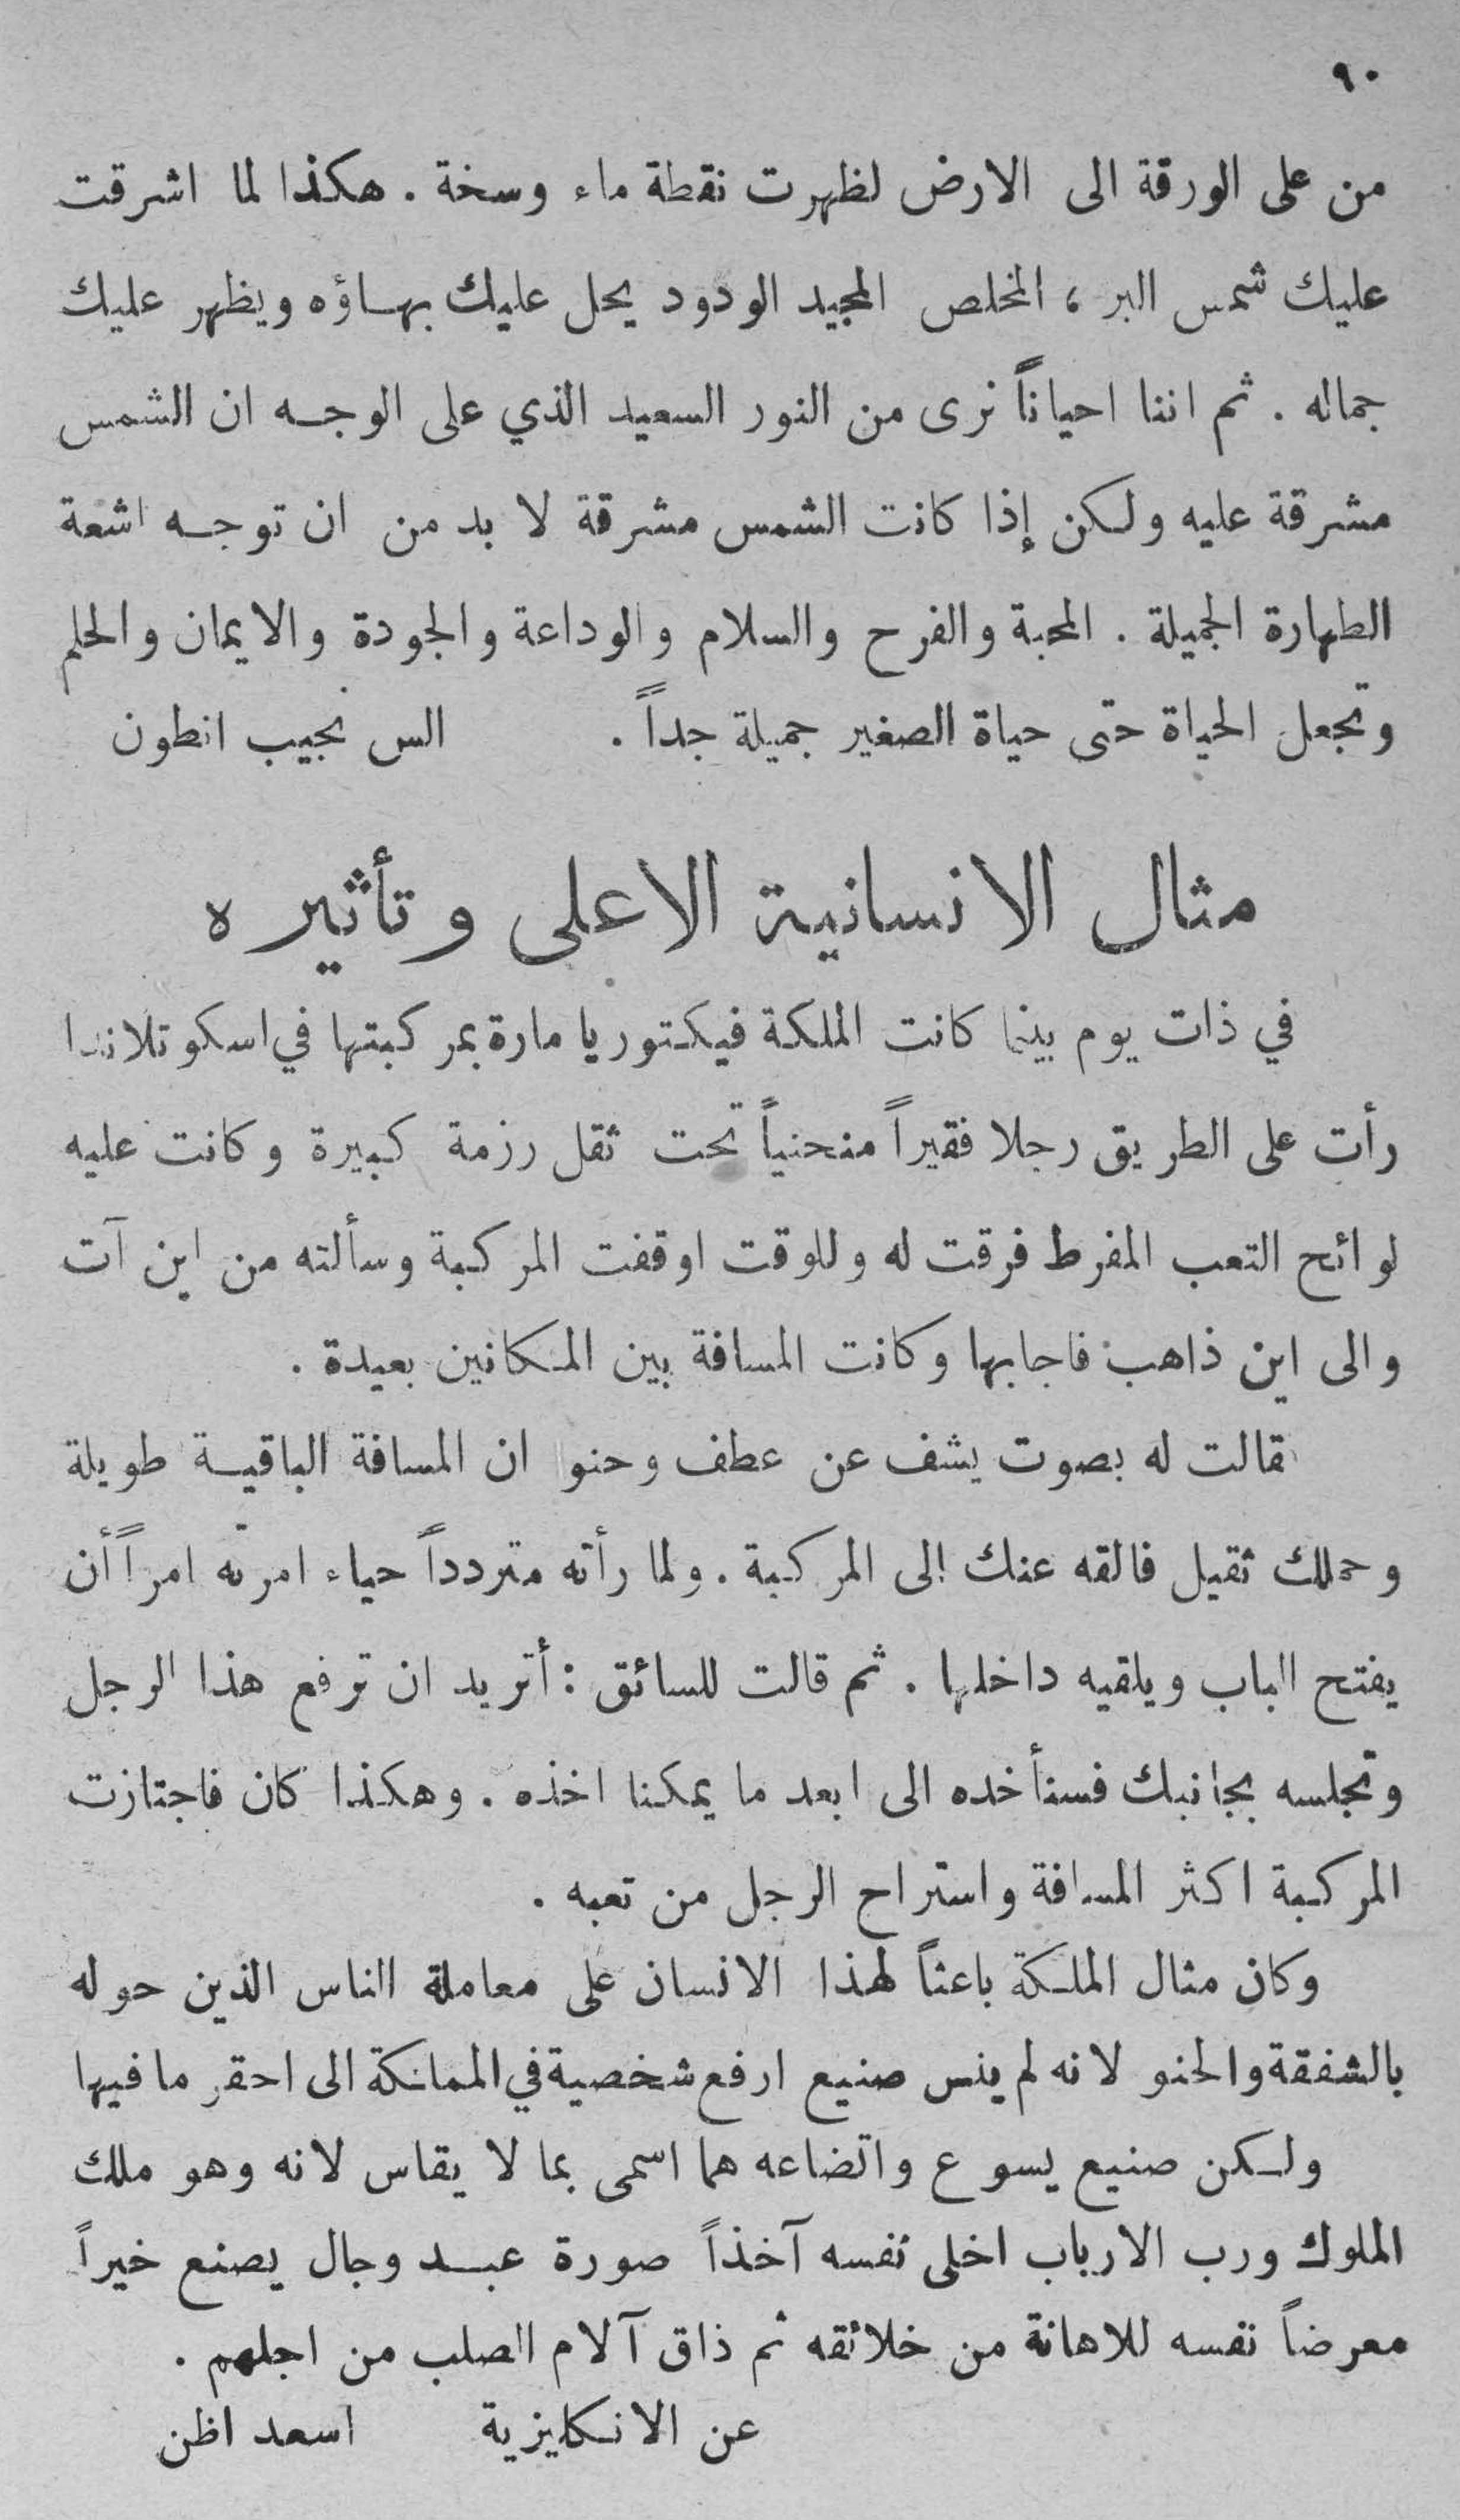 ٩٠
من على الورقة الى الارض لظهرت نقطة ماء وسخة . هكذا لما اشرقت
عليك شمس البر ، المخلص المجيد الودود يحل عليك بهاؤه ويظهر عليك
جماله . ثم اننا احياناً نرى من النور السعيد الذي على الوجه ان الشمس
مشرقة عليه ولكن إذا كانت الشمس مشرقة لا بد من ان توجه اشعة
الطهارة الجميلة . المحبة والفرح والسلام والوداعة والجودة والايمان والحلم
وتجعل الحياة حتى حياة الصغير جميلة جداً . الس نجيب انطون
مثال الانسانية الاعلى وتأثيره
في ذات يوم بينما كانت الملكة فيكتوريا مارة بمركبتها في اسكوتلاندا
رأت على الطريق رجلا فقيراً منحنياً تحت ثقل رزمة كبيرة وكانت عليه
لوائح التعب المفرط فرقت له وللوقت اوقفت المركبة وسألته من اين آت
والى اين ذاهب فاجابها وكانت المسافة بين المكانين بعيدة .
قالت له بصوت يشف عن عطف وحنو ان المسافة الباقية طويلة
وحملك ثقيل فالقه عنك إلى المركبة . ولما رأته متردداً حياء امرته امراً أن
يفتح الباب ويلقيه داخلها . ثم قالت للسائق : أتريد ان ترفع هذا الرجل
وتجلسه بجانبك فسنأخده الى ابعد ما يمكنا اخذه . وهكذا كان فاجتازت
المركبة اكثر المسافة واستراح الرجل من تعبه .
وكان مثال الملكة باعثاً لهذا الانسان على معاملة الناس الذين حوله
بالشفقة والحنو لانه لم ينس صنيع ارفع شخصية في المملكة الى احقر ما فيها
ولكن صنيع يسوع واتضاعه هما اسمى بما لا يقاس لانه وهو ملك
الملوك ورب الارباب اخلى نفسه آخذاً صورة عبد وجال يصنع خيراً
معرضاً نفسه للاهانة من خلائقه ثم ذاق آلام الصلب من اجلهم .
عن الانكليزية اسعد اظن